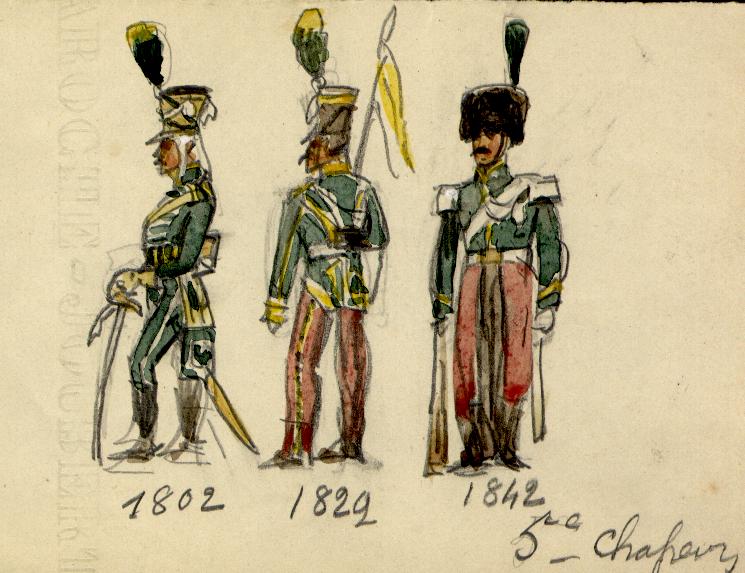 1802 1829 1842
5ᵉ Chasseurs